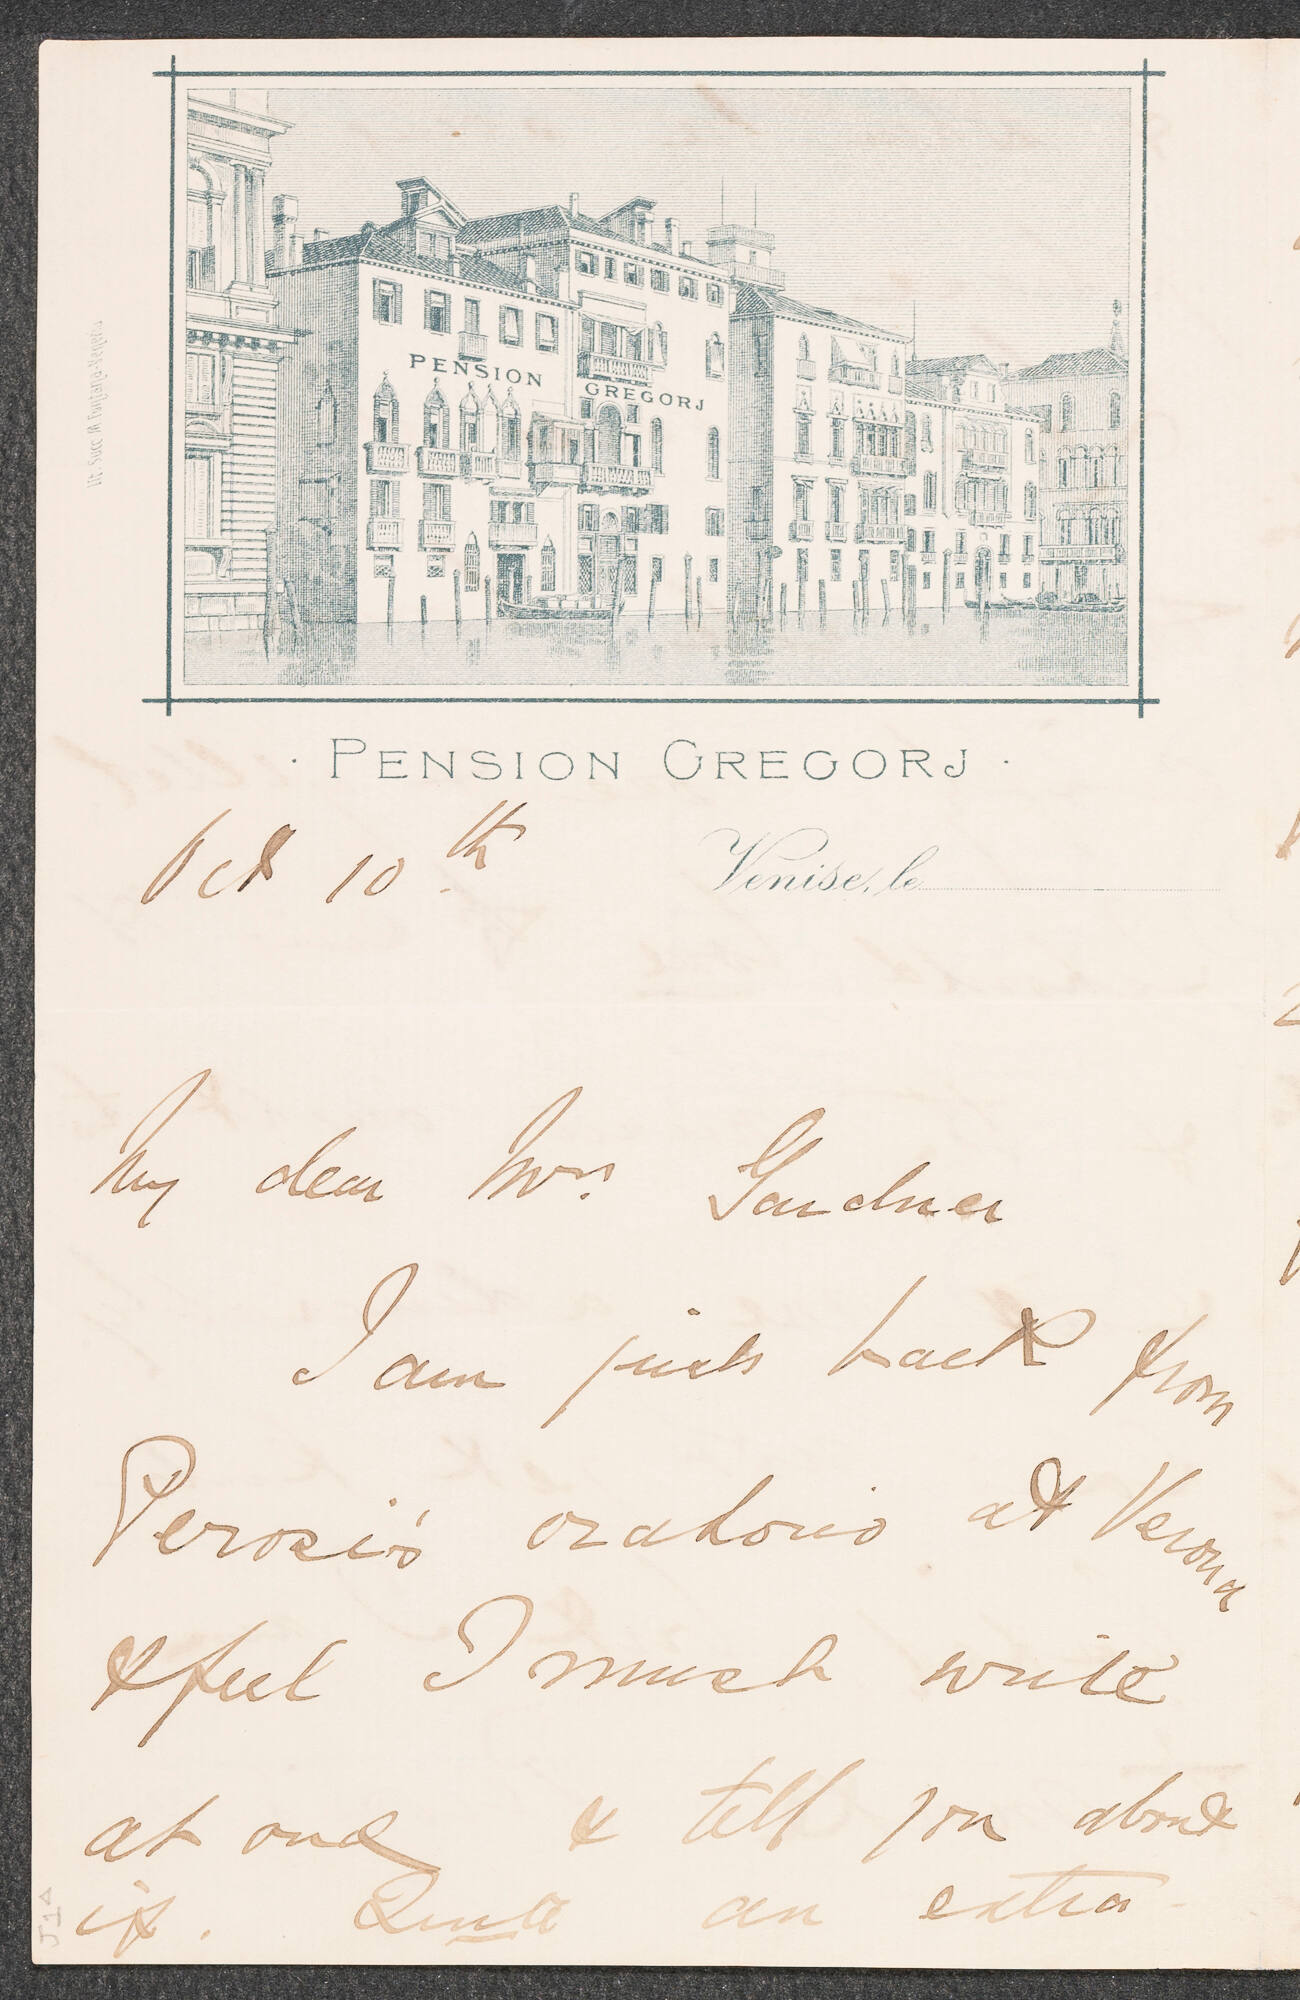 PENSION GREGORJ
Lit. Succ. M. Fontana-Venezia
· PENSION GREGORJ ·
Oct 10th Venise, le
My dear Mrs. Gardner
I am just back from
Perosi's oratorio at Verona
& feel I must write
at once & tell you about
it. Quite an extra-